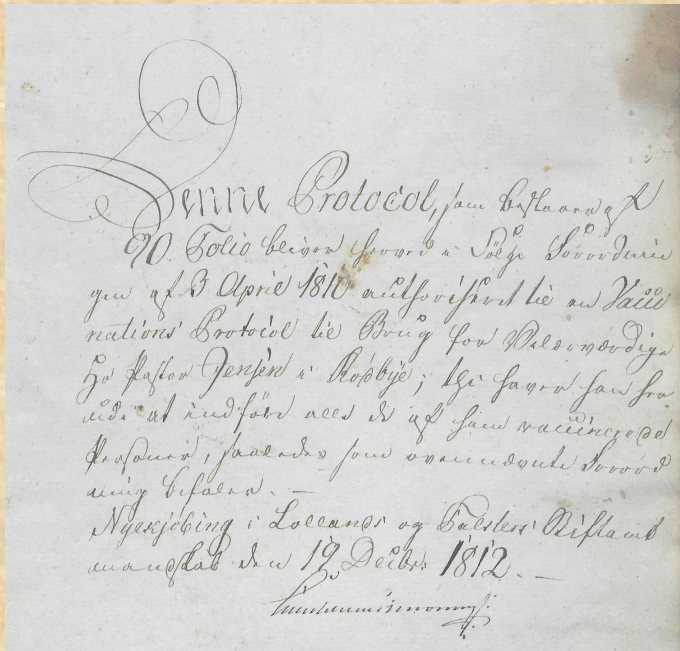 Denne Protocol, som bestaaer af
90. Folio bliver herved i Følge Forordnin
gen af 3 April 1810 authoriseret til en Vacci
nations Protocol til Brug for Velærværdige
Hr Pastor Jensen i Rødbye; thi haver han her
udi at indføre alle de af ham vaccinerede
Personer, saaledes som ovennævnte Forord
ning befaler. —
Nyekjøbing i Lollands og Falsters Stiftamt
mandskab den 19 Decbr. 1812. —